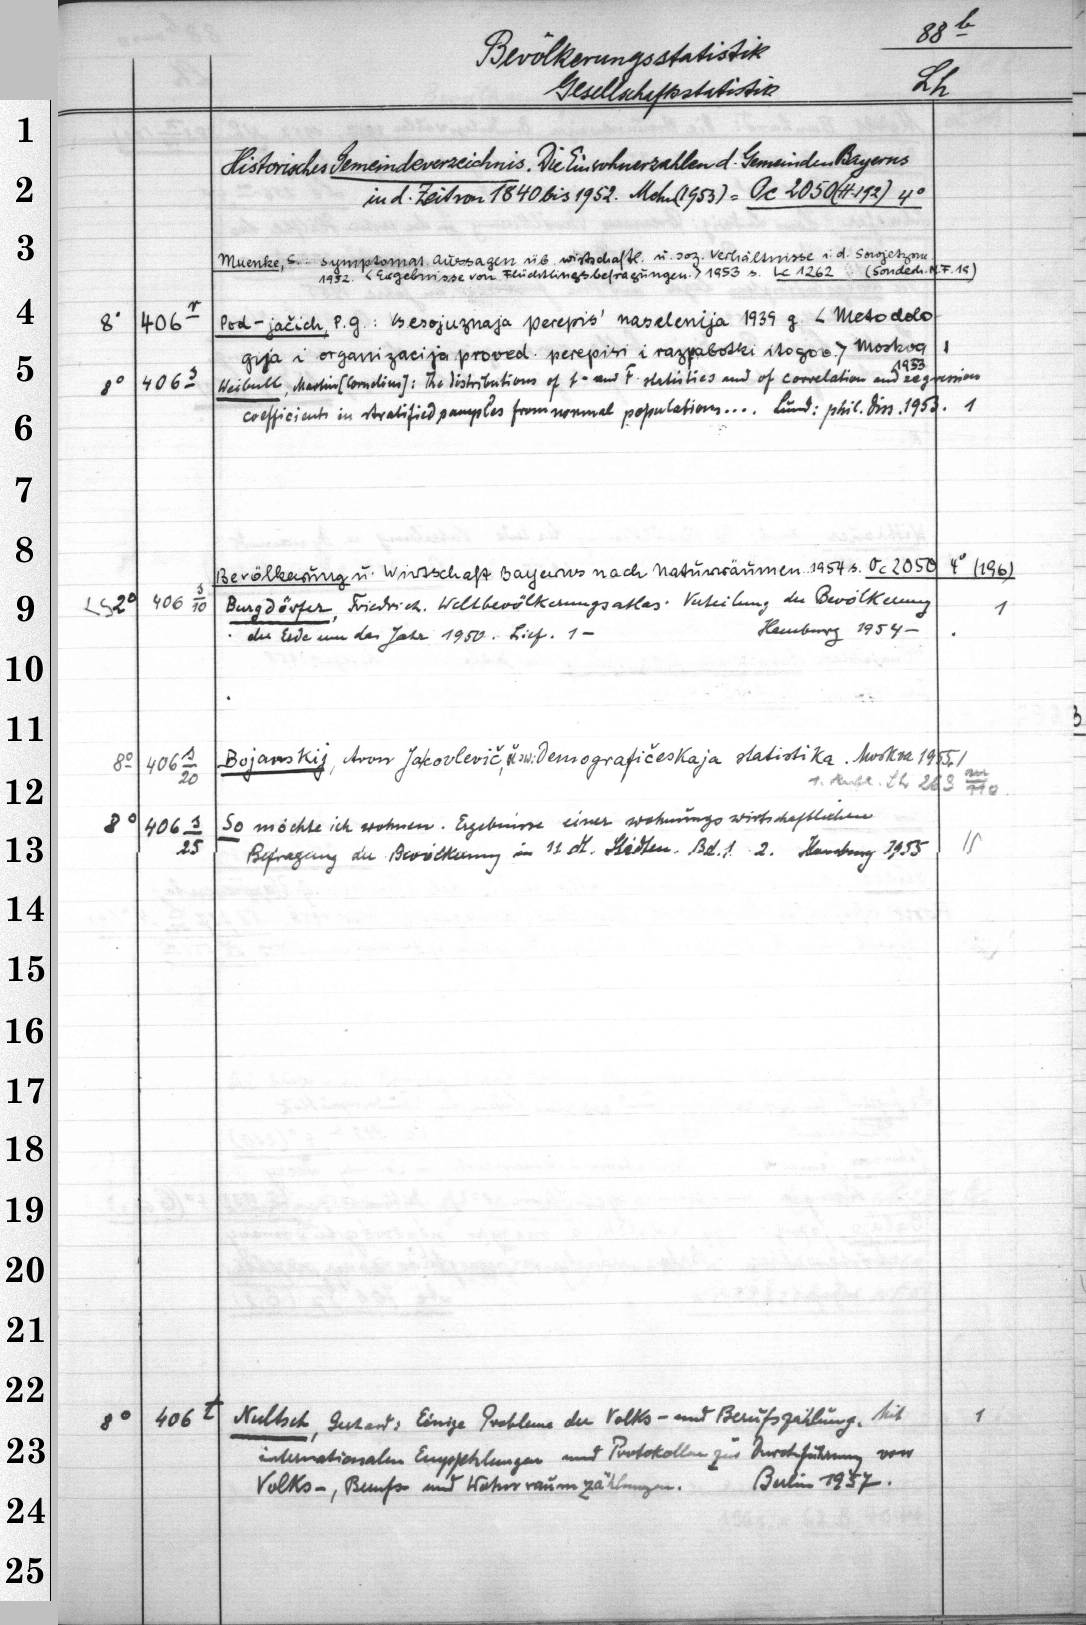 88 b
Bevölkerungsstatistik
Gesellschaftsstatistik
Lh
1
Historisches Gemeindeverzeichnis. Die Einwohnerzahlen d. Gemeinden Bayerns
2
in d. Zeit von 1840 bis 1952. Mchn (1953) = Oc 2050 (H. 192) 4°
3
Muenke, S. symptomat. Aussagen üb. wirtschaftl. u. soz. Verhältnisse i. d. Sowjetzone
1952. < Ergebnisse von Flüchtlingsbefragungen. > 1953 s. Lc 1262 (Sonderh. N.F. 19)
4
8° 406 r Pod-jačich, P. g.: Vsesojuznaja perepis' naselenija 1939 g. < Metodolo
gija i organizacija proved. perepisi i razrabotki itogov. > Moskva 1
5
1953
8° 406 s Weibull, Martin [Cornelius]: The distributions of t- and F- statistics and of correlation and regression
6
coefficients in stratified samples from normal populations... . Lund: phil. Diss. 1953. 1
7
8
Bevölkerung u. Wirtschaft Bayerns nach Naturräumen 1954 s. Oc 2050 4° (196)
9
LS 2° 406 s/10 Burgdörfer, Friedrich. Weltbevölkerungsatlas. Verteilung der Bevölkerung 1
der Erde um das Jahr 1950. Lief. 1 – Hamburg 1954 – .
10
11
8° 406 s/20 Bojarskij, Aron Jakovlevič, Demografičeskaja statistika. Moskva 1955. 1
12
1. Lh 263
8° 406 s/25 So möchte ich wohnen. Ergebnisse einer wohnungswirtschaftlichen
13
Befragung der Bevölkerung in 11 dt. Städten. Bd. 1. 2. Hamburg 1955
14
15
16
17
18
19
20
21
22
8° 406 t Nultsch, Gerhard: Einige Probleme der Volks- und Berufszählung. Mit 1
23
internationalen Empfehlungen und Protokollen zur Durchführung von
Volks-, Berufs- und Wohnraumzählungen. Berlin 1957.
24
25